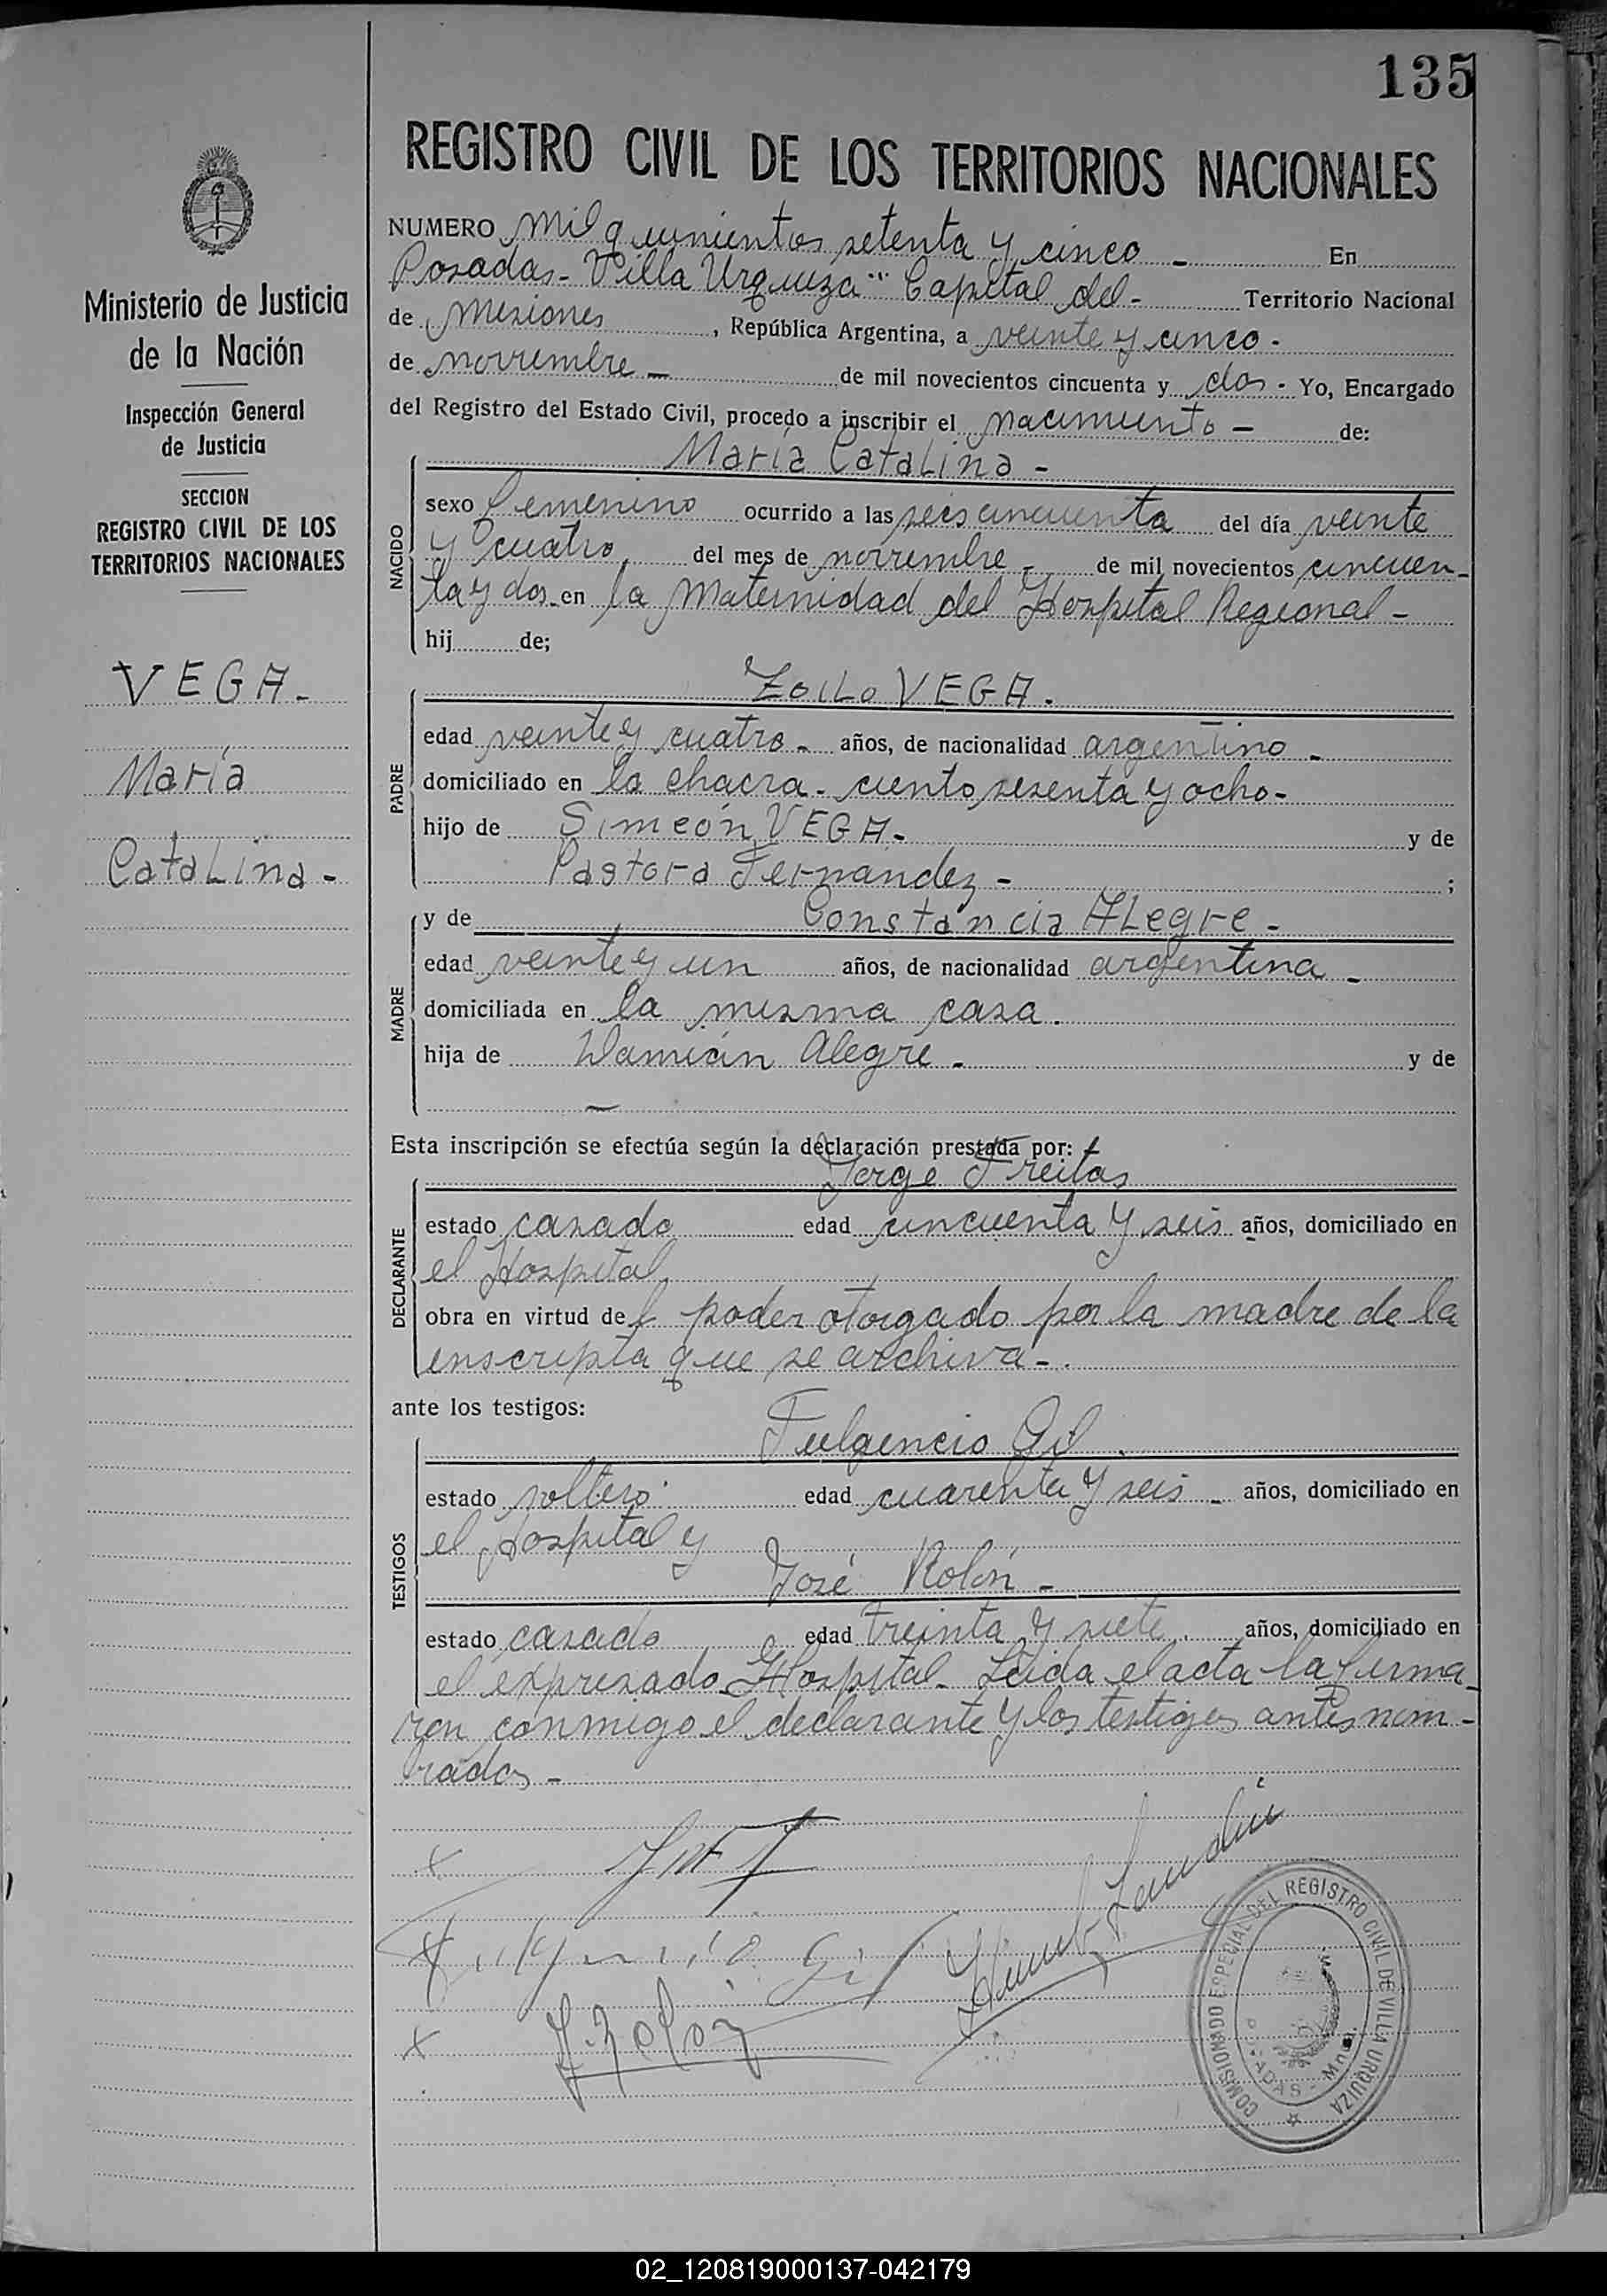 135
REGISTRO CIVIL DE LOS TERRITORIOS NACIONALES
Ministerio de Justicia
de la Nación
Inspección General
de Justicia
SECCION
REGISTRO CIVIL DE LOS
TERRITORIOS NACIONALES
VEGA-
María
Catalina-
NUMERO mil quinientos setenta y cinco - En
Posadas- Villa Urquiza" Capital del- Territorio Nacional
de Misiones, República Argentina, a veinte y cinco-
de noviembre - de mil novecientos cincuenta y dos- Yo, Encargado
del Registro del Estado Civil, procedo a inscribir el nacimiento - de:
María Catalina -
NACIDO
sexo femenino ocurrido a las seis cincuenta del día veinte
y cuatro del mes de noviembre - de mil novecientos cincuen-
ta y dos- en la Maternidad del Hospital Regional-
hij de;
PADRE
Zoilo VEGA.
edad veinte y cuatro- años, de nacionalidad argentino-
domiciliado en la chacra- ciento sesenta y ocho-
hijo de Simeón VEGA- y de
Pastora Fernandez- ;
MADRE
y de Constancia Alegre-
edad veinte y un años, de nacionalidad argentina-
domiciliada en la misma casa.
hija de Damián Alegre- y de
—
Esta inscripción se efectúa según la declaración prestada por:
DECLARANTE
Jorge Freitas
estado casado edad cincuenta y seis años, domiciliado en
el Hospital
obra en virtud del poder otorgado por la madre de la
inscripta que se archiva-.
ante los testigos:
TESTIGOS
Fulgencio Gil.
estado soltero edad cuarenta y seis- años, domiciliado en
el Hospital y
José Rolón-
estado casado edad treinta y siete. años, domiciliado en
el expresado Hospital- Leida el acta la firma-
ron conmigo el declarante y los testigos antes nom-
brados-
x
x Fulgencio Gil
x J. Rolón
COMISIONADO ESPECIAL DEL REGISTRO CIVIL DE VILLA URQUIZA
POSADAS - Mnes.
02_120819000137-042179